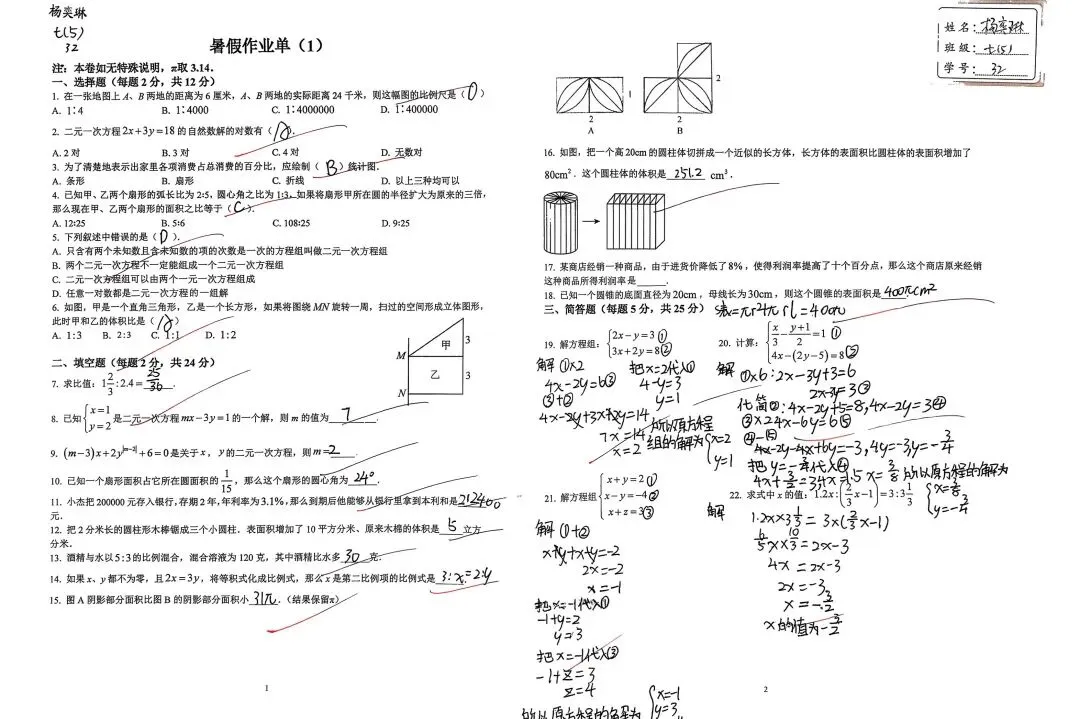 杨奕琳
七(5)
32
姓名：杨奕琳
班级：七(5)
学号：32
暑假作业单（1）
注：本卷如无特殊说明，π取 3.14．
一、选择题（每题 2 分，共 12 分）
1. 在一张地图上 A、B 两地的距离为 6 厘米，A、B 两地的实际距离 24 千米，则这幅图的比例尺是（D）
A. 1∶4 B. 1∶4000 C. 1∶4000000 D. 1∶400000
2. 二元一次方程 2x+3y=18 的自然数解的对数有（A）.
A. 2 对 B. 3 对 C. 4 对 D. 无数对
3. 为了清楚地表示出家里各项消费占总消费的百分比，应绘制（B）统计图.
A. 条形 B. 扇形 C. 折线 D. 以上三种均可以
4. 已知甲、乙两个扇形的弧长比为 2∶5，圆心角之比为 1∶3，如果将扇形甲所在圆的半径扩大为原来的三倍，
那么现在甲、乙两个扇形的面积之比等于（C）.
A. 12∶25 B. 5∶6 C. 108∶25 D. 9∶25
5. 下列叙述中错误的是（D）.
A. 只含有两个未知数且含未知数的项的次数是一次的方程组叫做二元一次方程组
B. 两个二元一次方程不一定能组成一个二元一次方程组
C. 二元一次方程组可以由两个一元一次方程组成
D. 任意一对数都是二元一次方程的一组解
6. 如图，甲是一个直角三角形，乙是一个长方形，如果将图绕 MN 旋转一周，扫过的空间形成立体图形，
此时甲和乙的体积比是（A）
A. 1∶3 B. 2∶3 C. 1∶1 D. 1∶2
甲 3
M
乙 3
N
二、填空题（每题 2 分，共 24 分）
7. 求比值：1 2/3 : 2.4= 25/36 .
8. 已知 {x=1 y=2 是二元一次方程 mx−3y=1 的一个解，则 m 的值为 7 .
9. (m−3)x+2y^|m−2|+6=0 是关于 x，y 的二元一次方程，则 m=2 .
10. 已知一个扇形面积占它所在圆面积的 1/15，那么这个扇形的圆心角为 24° .
11. 小杰把 200000 元存入银行，存期 2 年，年利率为 3.1%，那么到期后他能够从银行里拿到本利和是 212400
元.
12. 把 2 分米长的圆柱形木棒锯成三个小圆柱．表面积增加了 10 平方分米、原来木棉的体积是 5 立方
分米.
13. 酒精与水以 5∶3 的比例混合，混合溶液为 120 克，其中酒精比水多 30 克.
14. 如果 x、y 都不为零，且 2x=3y，将等积式化成比例式，那么 x 是第二比例项的比例式是 3:x=2:y
15. 图 A 阴影部分面积比图 B 的阴影部分面积小 31π .（结果保留π）
1
1
2
A
2
2
B
16. 如图，把一个高 20cm 的圆柱体切拼成一个近似的长方体，长方体的表面积比圆柱体的表面积增加了
80cm²．这个圆柱体的体积是 251.2 cm³．
17. 某商店经销一种商品，由于进货价降低了 8%，使得利润率提高了十个百分点，那么这个商店原来经销
这种商品所得利润率是 .
18. 已知一个圆锥的底面直径为 20cm，母线长为 30cm，则这个圆锥的表面积是 400πcm²
三、简答题（每题 5 分，共 25 分）
S表=πr²+πrl=400π
19. 解方程组：{2x−y=3① 3x+2y=8②
解 ①×2
4x−2y=6③
③+②
4x-2y+3x+2y=14
7x=14
x=2
把x=2代入①
4-y=3
y=1
所以原方程
组的解为{x=2 y=1
20. 计算：{x/3−(y+1)/2=1① 4x−(2y−5)=8②
解 ①×6:2x-3y+3=6
2x-3y=3③
化简②:4x-2y+5=8,4x-2y=3④
③×2 4x-6y=6⑤
④-⑤
4x-2y-4x+6y=-3,4y=-3y=-3/4
把y=-3/4代入④
4x+3/2=3 4x=1.5 x=3/8 所以原方程的解为
{x=3/8 y=-3/4
21. 解方程组{x+y=2① x−y=−4② x+z=3③
解 ①+②
x+y+x-y=-2
2x=-2
x=-1
把x=-1代入①
-1+y=2
y=3
把x=-1代入③
-1+z=3
z=4
所以原方程的解为{x=-1 y=3
22. 求式中 x 的值：1.2x:(2/3x−1)=3:3 1/3
解 1.2x×3 1/3=3×(2/3x-1)
6/5x×10/3=2x-3
4x=2x-3
2x=-3
x=-3/2
x的值为-3/2
2